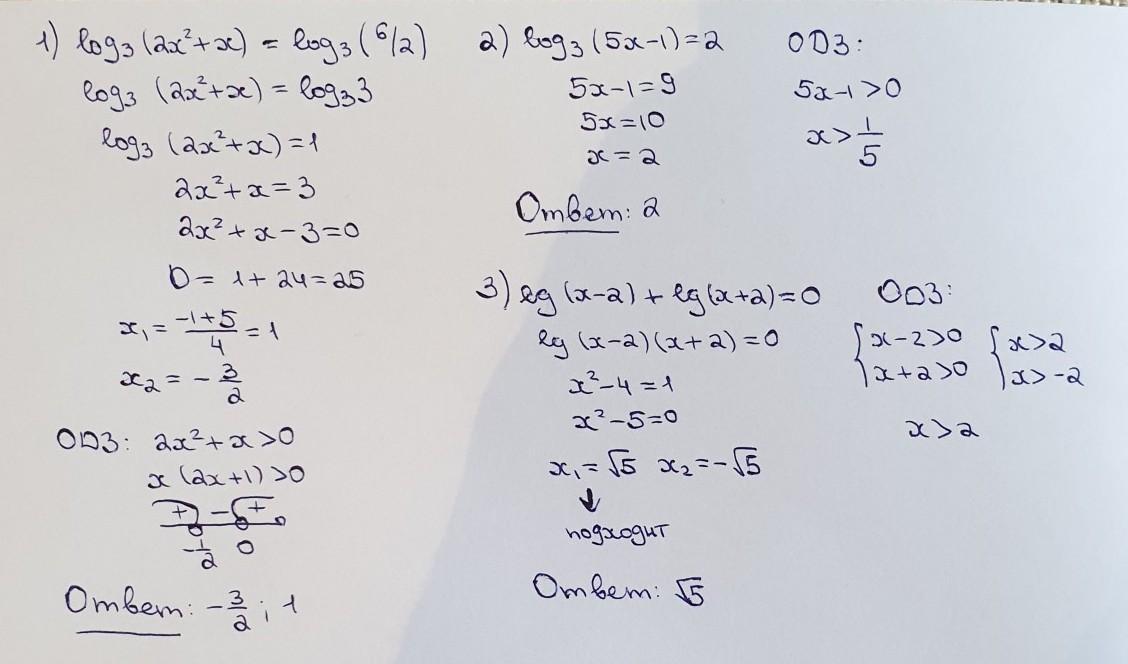 1) log₃(2x²+x) = log₃(6/2)
log₃ (2x²+x) = log₃3
log₃ (2x²+x) = 1
2x²+x = 3
2x²+x-3=0
D= 1+24=25
x₁= (-1+5)/4 = 1
x₂ = -3/2
ОДЗ: 2x²+x>0
x(2x+1)>0
+ - +
-1/2 0
Ответ: -3/2; 1
2) log₃(5x-1)=2
5x-1=9
5x=10
x=2
Ответ: 2
ОДЗ:
5x-1>0
x> 1/5
3) lg(x-2)+lg(x+2)=0
lg (x-2)(x+2)=0
x²-4=1
x²-5=0
x₁=√5 x₂=-√5
↓
подходит
Ответ: √5
ОДЗ:
{x-2>0 {x>2
{x+2>0 {x>-2
x>2